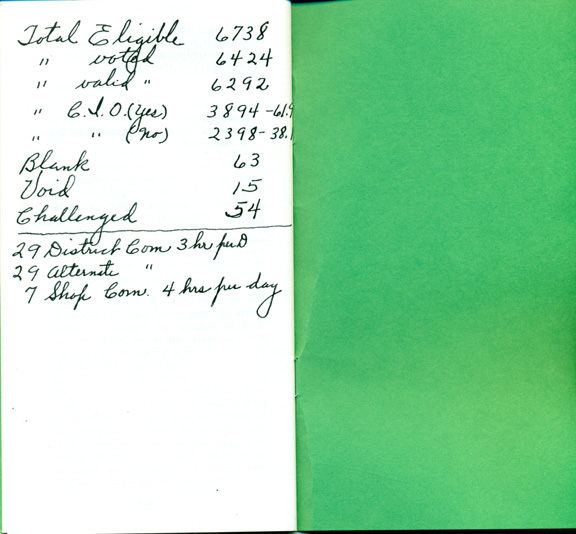 Total Eligible 6738
" voted 6424
" valid " 6292
" C.I.O.(Yes) 3894-61.9
" " (No) 2398-38.1
Blank 63
Void 15
Challenged 54
29 District Com 3 hr per D
29 Alternate "
7 Shop Com. 4 hrs per day